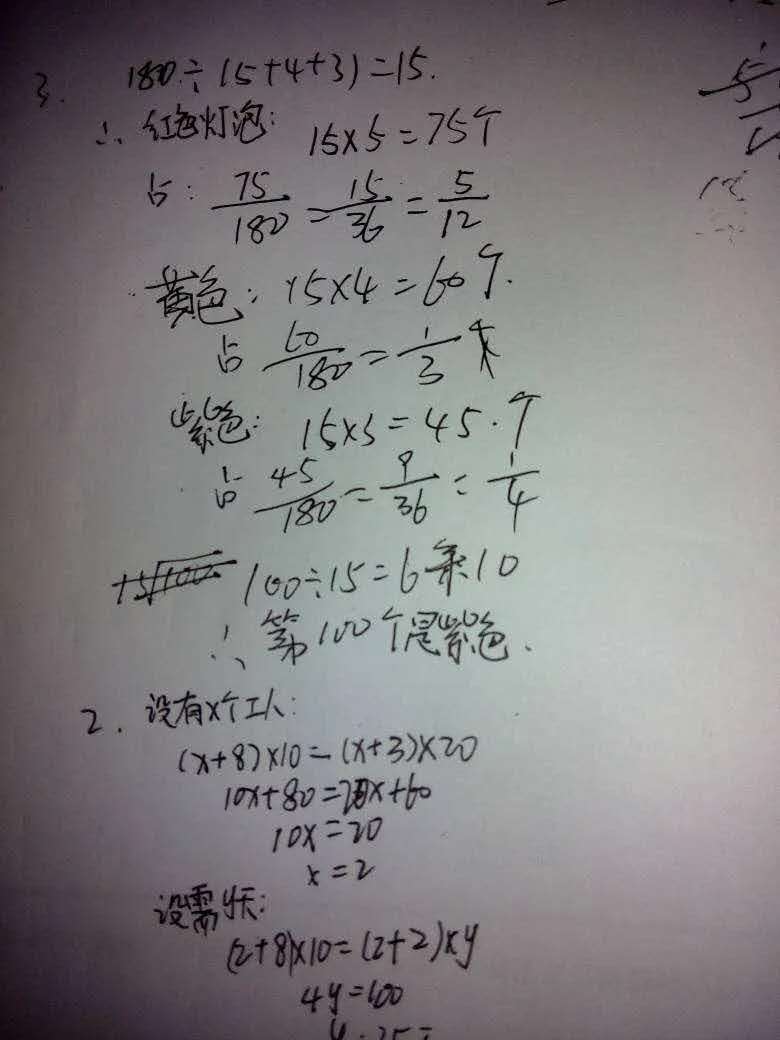 3. 180÷(5+4+3)=15.
∴ 红色灯泡: 15×5=75个
占: 75/180=15/36=5/12
黄色: 15×4=60个.
占 60/180=1/3
紫色: 15×3=45.个
占 45/180=9/36=1/4
100÷15=6 10
∴ 第100个是紫色.
2. 设有x个工人:
(x+8)×10=(x+3)×20
10x+80=20x+60
10x=20
x=2
设需y天:
(2+8)×10=(2+2)×y
4y=100